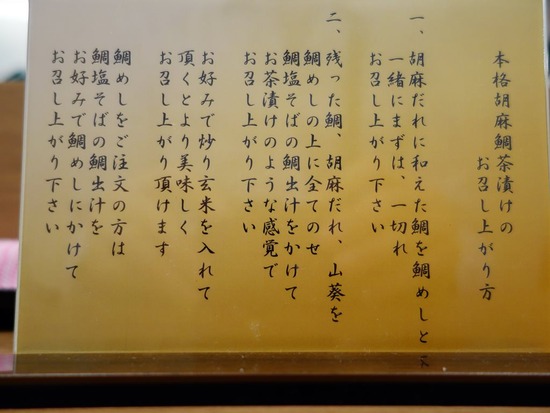 本格胡麻鯛茶漬けの
お召し上がり方
一、胡麻だれに和えた鯛を鯛めしと
一緒にまずは、一切れ
お召し上がり下さい
二、残った鯛、胡麻だれ、山葵を
鯛めしの上に全てのせ
鯛塩そばの鯛出汁をかけて
お茶漬けのような感覚で
お召し上がり下さい
お好みで炒り玄米を入れて
頂くとより美味しく
お召し上がり頂けます
鯛めしをご注文の方は
鯛塩そばの鯛出汁を
お好みで鯛めしにかけて
お召し上がり下さい